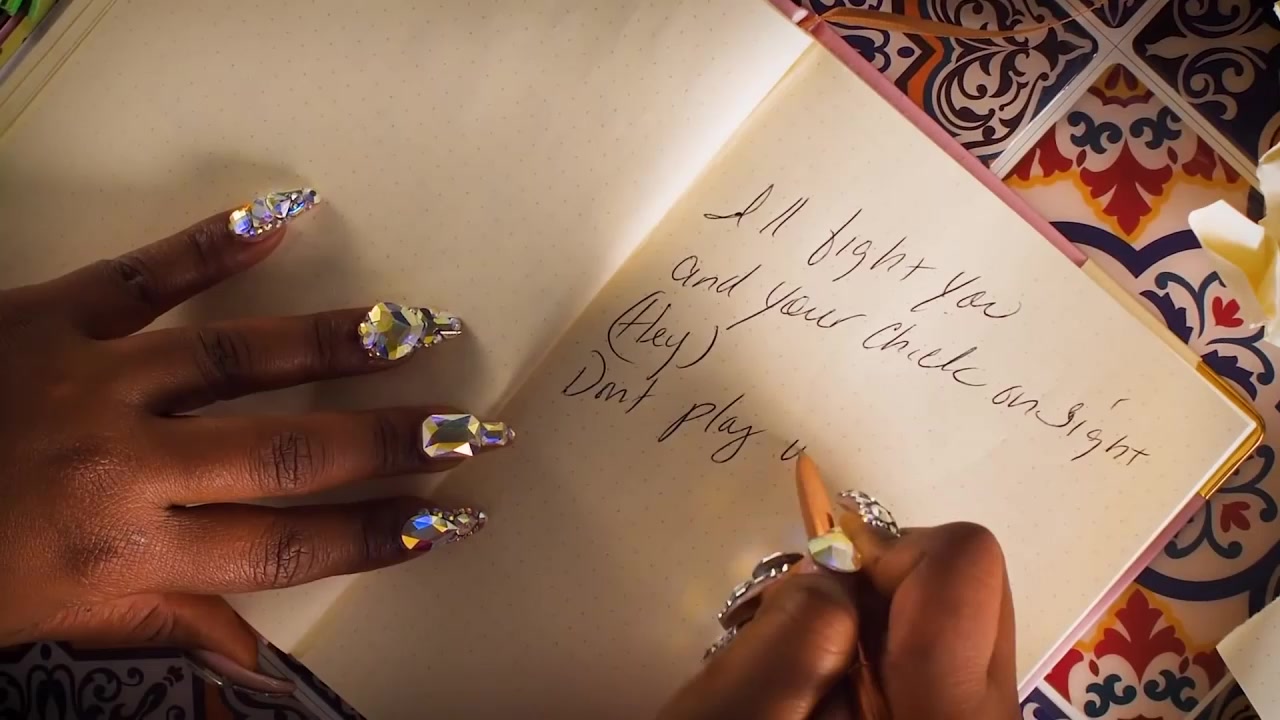 I'll fight you
and your chick on sight
(Hey)
Dont play w